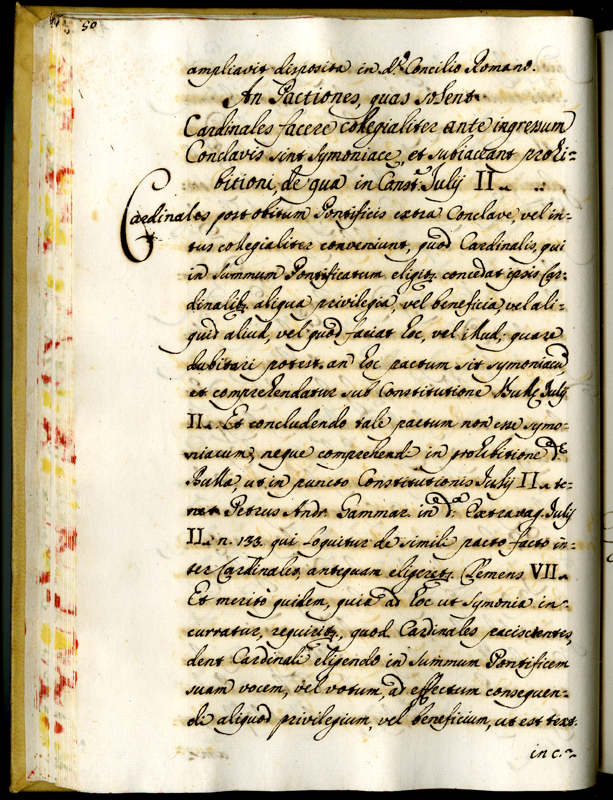 50
ampliavit disposita in d.º Concilio Romano.
An Pactiones, quas solent
Cardinales facere collegialiter ante ingressum
Conclavis sint symoniace, et subiaceant prohi-
bitioni, de qua in Const.e Julij II.
Cardinales post obitum Pontificis extra Conclave, vel in-
tus collegialiter conveniunt, quod Cardinalis, qui
in summum Pontificatum eligitr concedat ipsis Car-
dinalib9 aliqua privilegia, vel beneficia, vel ali-
quid aliud, vel quod faciat hoc, vel illud; quare
dubitari potest an hoc pactum sit symoniacũ
et comprehendatur sub Constitutione Bulle Julij
II. Et concludendo tale pactum non esse symo-
niacum, neque comprehendi in prohibitione d.e
Bulla, ut in puncto Constitutionis Julij II. te-
net Petrus Andr. Gammar. in d.a Extravag. Julij
II. n. 133. qui loquitur de simili pacto facto in-
ter Cardinales, antequam eligeretr. Clemens VII.
Et merito quidem, quia ad hoc ut symonia in-
curratur, requiritr, quod Cardinales paciscentes,
dent Cardinali eligendo in summum Pontificem
suam vocem, vel votum, ad effectum consequen-
di aliquod privilegium, vel beneficium, ut est text.
in c.